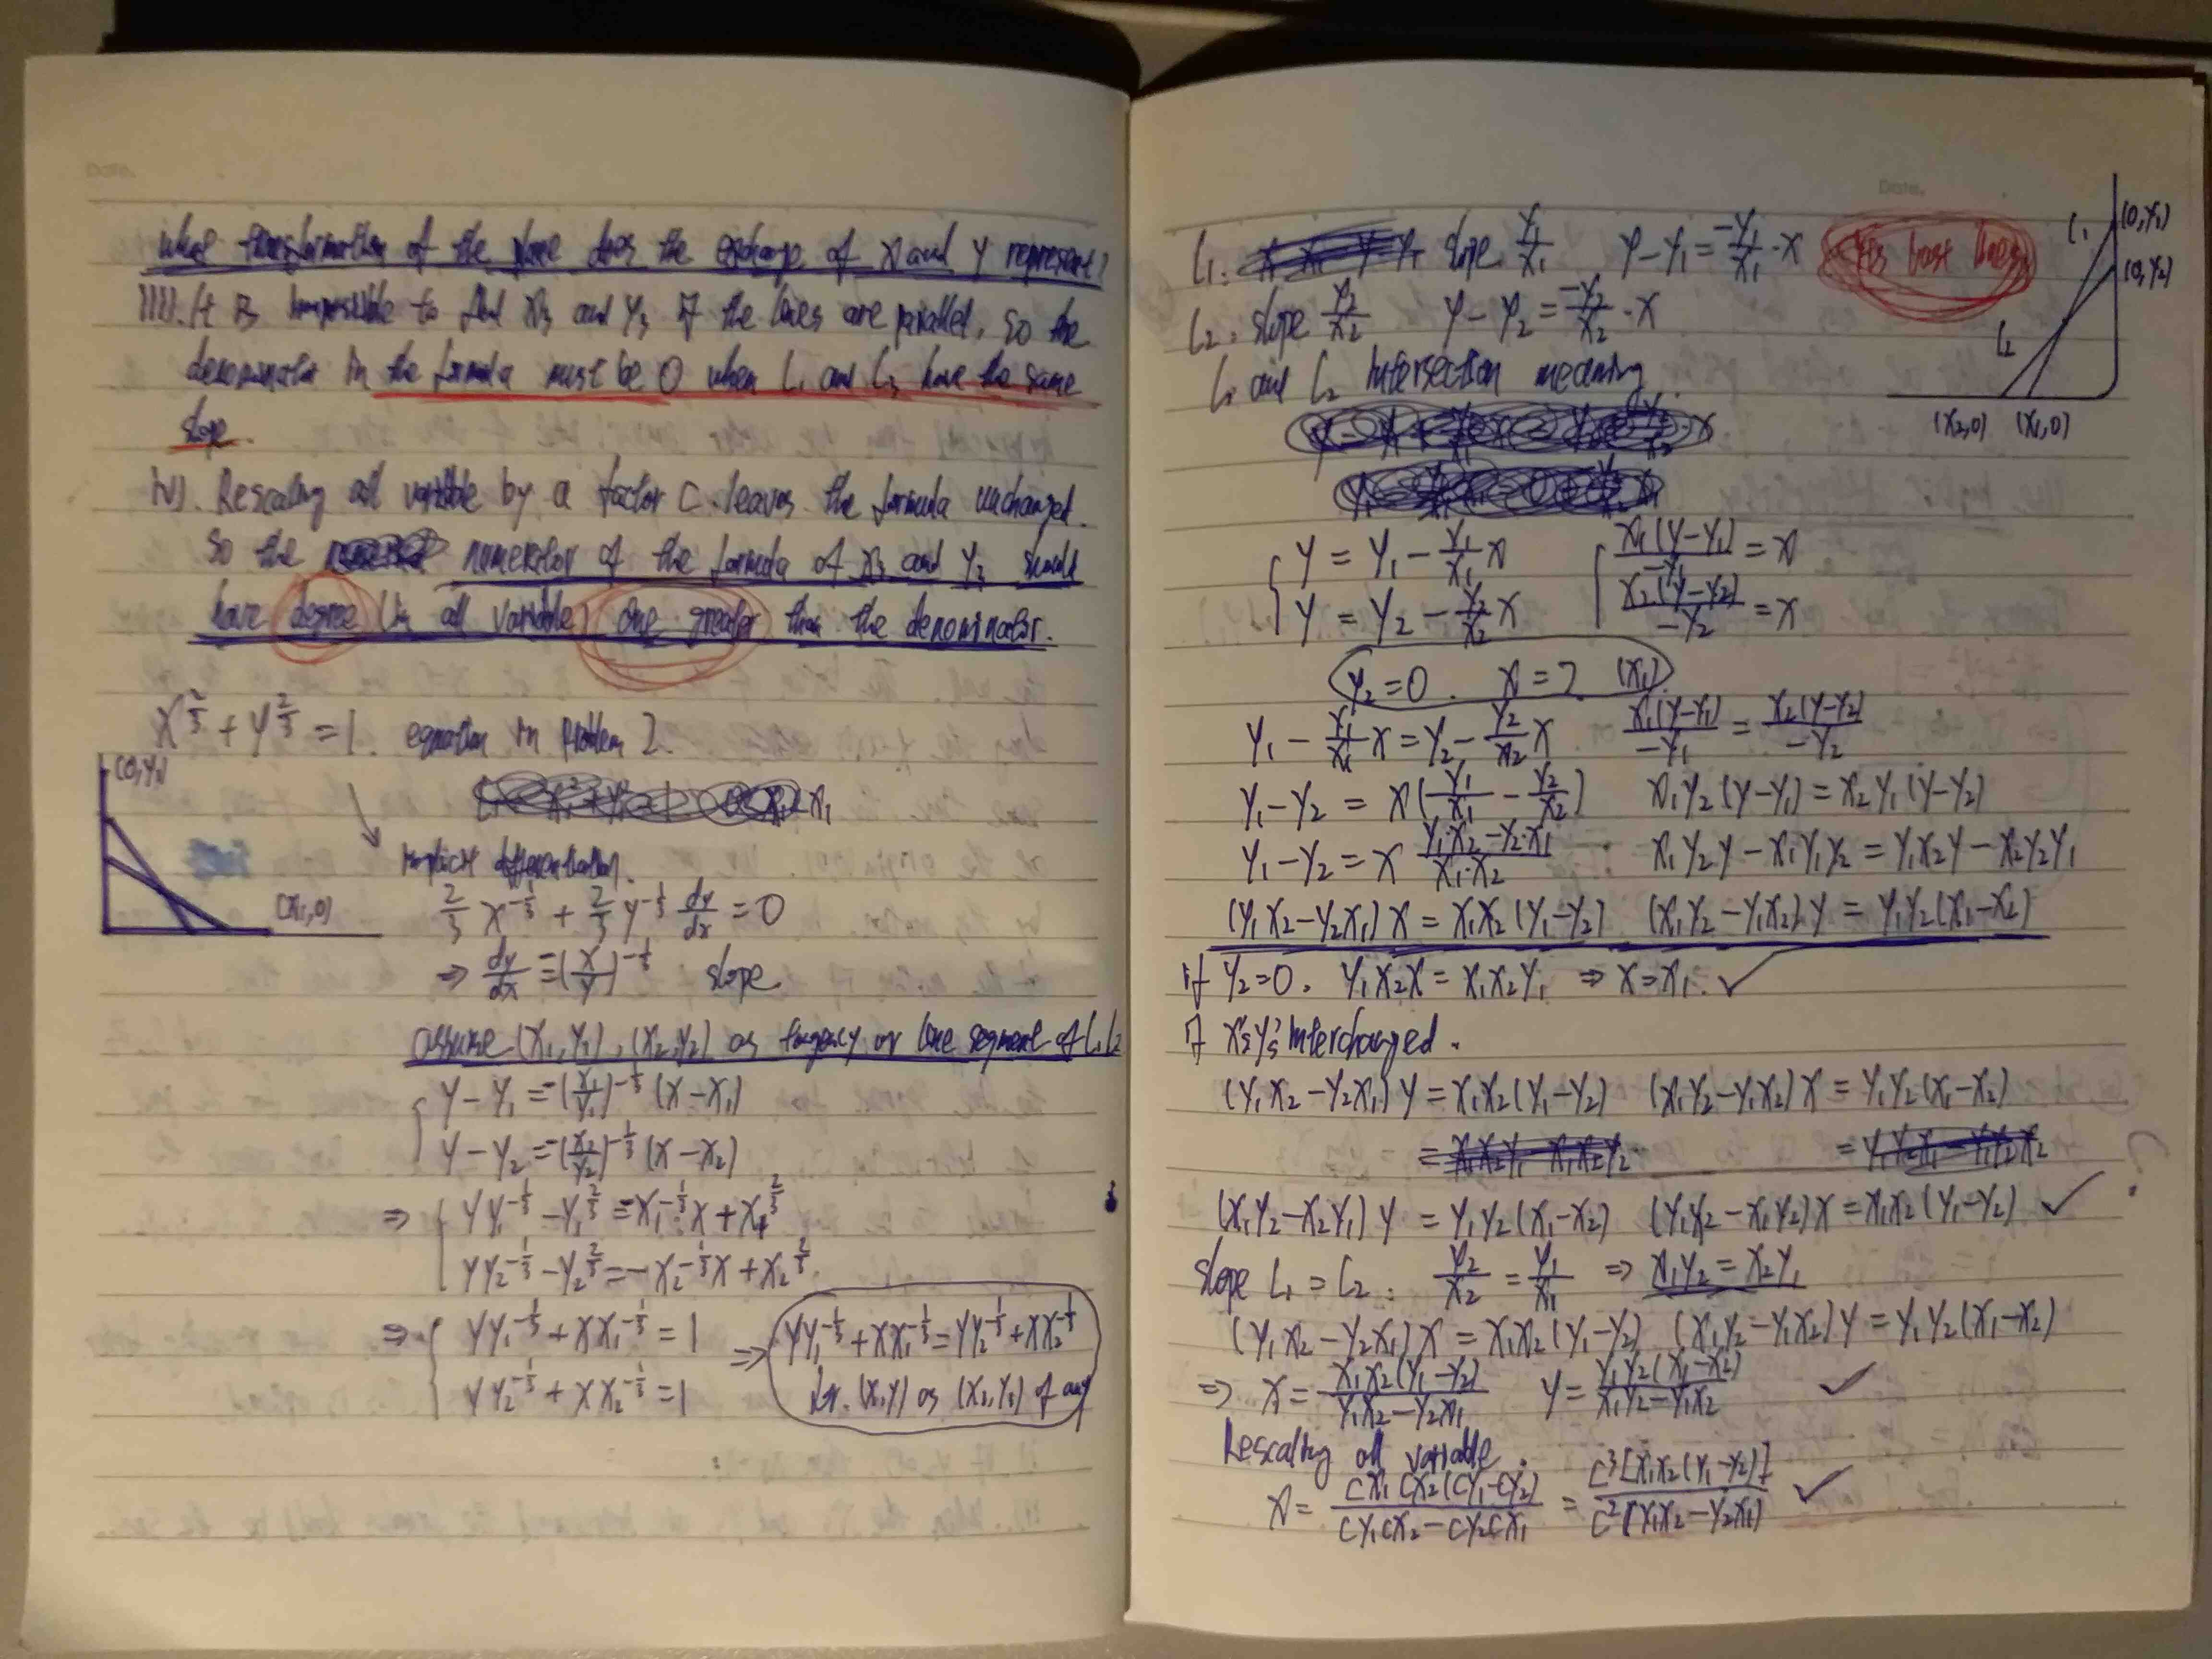 Date.
what transformation of the plane does the exchange of x and y represent?
iii). It is impossible to find x₃ and y₃ if the lines are parallel, so the
denominator in the formula must be 0 when L₁ and L₂ have the same
slope.
iv). Rescaling all variable by a factor c leaves the formula unchanged.
So the numerator of the formula of x₃ and y₃ should
have degree (in all variable) one greater than the denominator.
x^(2/3) + y^(2/3) = 1. equation in problem 2.
(0,y₂)
x₁
Implicit differentiation.
(x₁,0)
2/3 x^(-1/3) + 2/3 y^(-1/3) dy/dx = 0
⇒ dy/dx = -(x/y)^(-1/3) slope.
assume (x₁,y₁), (x₂,y₂) as tangency or line segment of L₁L₂
y - y₁ = -(x₁/y₁)^(-1/3) (x - x₁)
y - y₂ = -(x₂/y₂)^(-1/3) (x - x₂)
⇒ yy₁^(-1/3) - y₁^(2/3) = -x₁^(-1/3) x + x₁^(2/3)
yy₂^(-1/3) - y₂^(2/3) = -x₂^(-1/3) x + x₂^(2/3).
⇒ yy₁^(-1/3) + xx₁^(-1/3) = 1
yy₂^(-1/3) + xx₂^(-1/3) = 1
⇒ yy₁^(-1/3) + xx₁^(-1/3) = yy₂^(-1/3) + xx₂^(-1/3)
for (x,y) as (x₃,y₃) of any
Date.
L₁: slope y₁/x₁ y - y₁ = -y₁/x₁ · x
L₂: slope y₂/x₂ y - y₂ = -y₂/x₂ · x
L₁ (0,y₁)
(0,y₂)
L₂
(x₂,0) (x₁,0)
L₁ and L₂ intersection meaning
y = y₁ - y₁/x₁ x x₁(y-y₁)/-y₁ = x
y = y₂ - y₂/x₂ x x₂(y-y₂)/-y₂ = x
y₂ = 0. x = ? (x₁)
y₁ - y₁/x₁ x = y₂ - y₂/x₂ x x₁(y-y₁)/-y₁ = x₂(y-y₂)/-y₂
y₁ - y₂ = x(y₁/x₁ - y₂/x₂) x₁y₂(y-y₁) = x₂y₁(y-y₂)
y₁ - y₂ = x y₁·x₂-y₂·x₁/x₁·x₂ x₁y₂y - x₁y₁y₂ = y₁x₂y - x₂y₂y₁
(y₁x₂-y₂x₁)x = x₁x₂(y₁-y₂) (x₁y₂-y₁x₂)y = y₁y₂(x₁-x₂)
if y₂=0. y₁x₂x = x₁x₂y₁ ⇒ x = x₁. ✓
if x's y's interchanged.
(y₁x₂-y₂x₁)y = x₁x₂(y₁-y₂) (x₁y₂-y₁x₂)x = y₁y₂(x₁-x₂)
(x₁y₂-x₂y₁)y = y₁y₂(x₁-x₂) (y₁y₂-x₁y₂)x = x₁x₂(y₁-y₂) ✓
slope L₁ = L₂: y₂/x₂ = y₁/x₁ ⇒ x₁y₂ = x₂y₁
(y₁x₂-y₂x₁)x = x₁x₂(y₁-y₂) (x₁y₂-y₁x₂)y = y₁y₂(x₁-x₂)
⇒ x = x₁x₂(y₁-y₂)/y₁x₂-y₂x₁ y = y₁y₂(x₁-x₂)/x₁y₂-y₁x₂ ✓
Rescaling all variable.
x = cx₁cx₂(cy₁-cy₂)/cy₁cx₂-cy₂cx₁ = c³[x₁x₂(y₁-y₂)]/c²(y₁x₂-y₂x₁) ✓